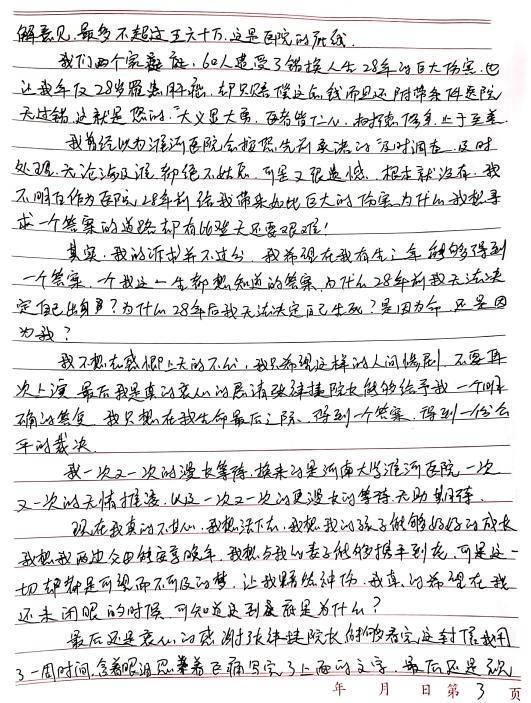 解意见,最多不超过五六十万,这是医院的底线。
我们两个家庭,60人遭受了错换人生28年的巨大伤害,也
让我年仅28岁罹患肝癌,却只赔偿这点钱而且还附带条件医院
无过错,这就是您的:"大义显大爱,医者皆仁心,树德修身,止于至善
我曾经以为淮河医院会按您先前承诺的"及时调查,及时
处理,无论涉及谁,都绝不姑息,可是又很遗憾,根本就没有,我
不明白作为医院,28年前给我带来如此巨大的伤害,为什么我想寻
求一个答案的道路却有比登天还要艰难!
其实,我的诉求并不过分,我希望在我有生之年能够得到
一个答案,一个我这一生都想知道的答案,为什么28年前我无法决
定自己出身?为什么28年后我无法决定自己生死?是因为命,还是因
为我?
我不想去感慨上天的不公,我只希望这样的人间惨剧,不要再
次上演,最后我是真的衷心的恳请张建捷院长能够给予我一个明
确的答复,我只想在我生命最后之际,得到一个答案,得到一份公
平的裁决。
我一次又一次的漫长等待,换来的是河南大学淮河医院一次
又一次的无情推诿,以及一次又一次的更漫长的等待,无助,期待。
现在我真的不甘心,我想活下去,我想我的孩子能够好好的成长
我想我两边父母能安享晚年,我想与我的妻子能够携手到老,可是这一
切却都是可望而不可及的梦,让我黯然神伤,我真的希望在我
还未闭眼的时候,可知道这到底是为什么?
最后还是衷心的感谢张建捷院长能够看完这封信,我用
了一周时间,含着眼泪忍着巨痛写完了上面的文字,最后还是祝
年 月 日第 3 页